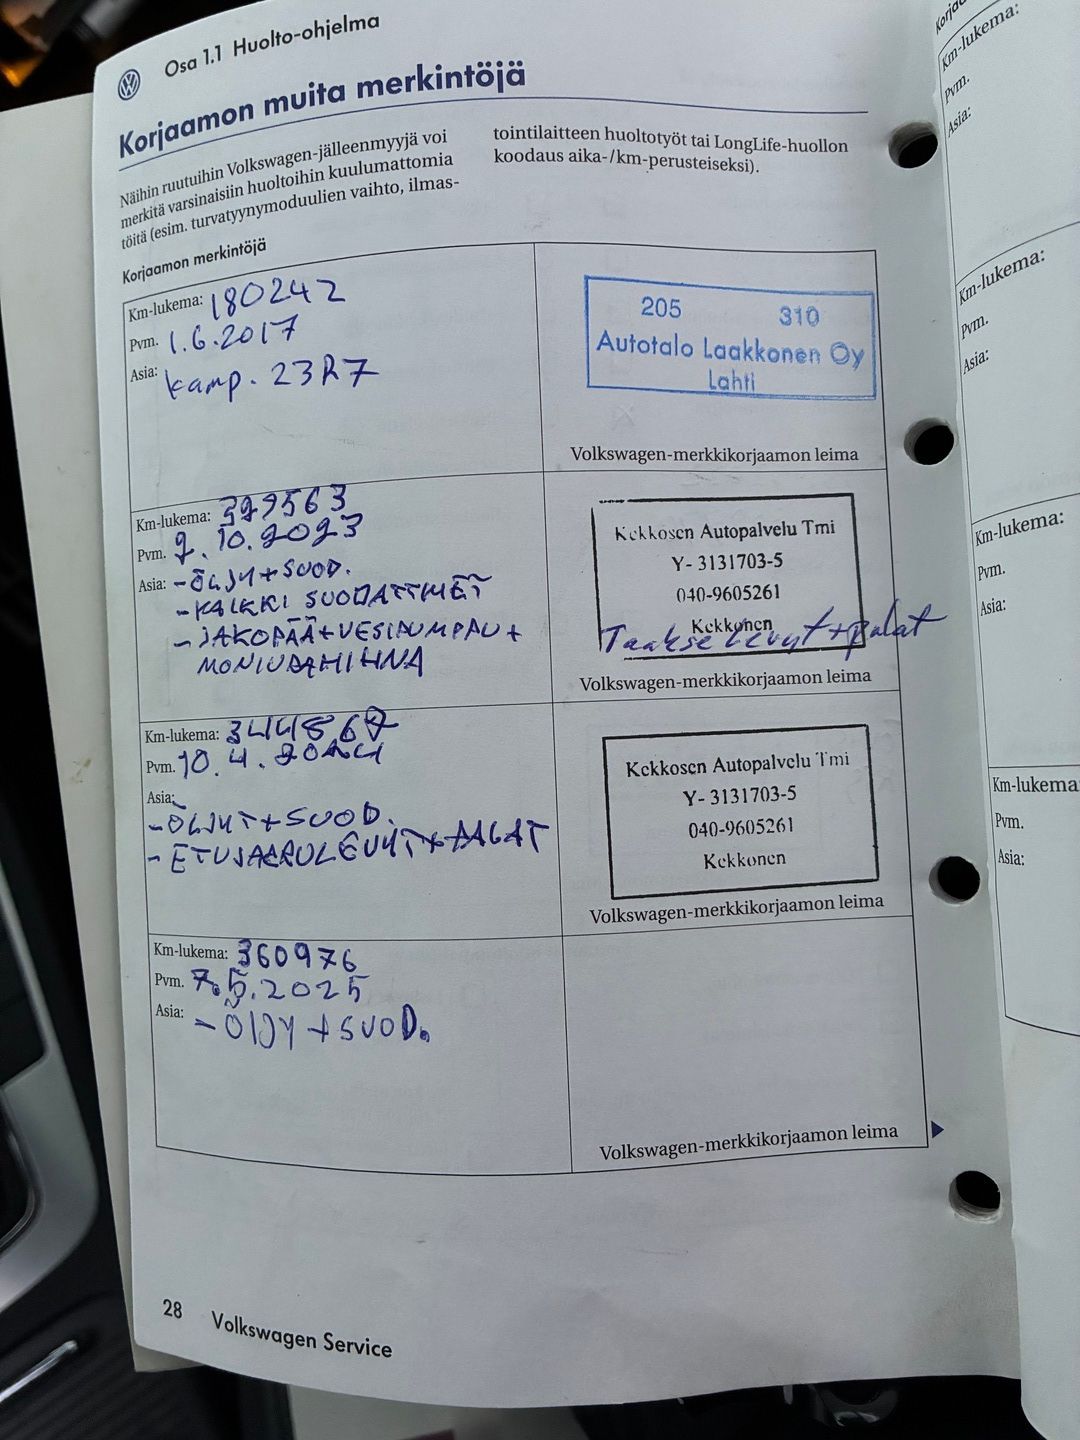 Osa 1.1 Huolto-ohjelma
Korjaamon muita merkintöjä
Näihin ruutuihin Volkswagen-jälleenmyyjä voi
merkitä varsinaisiin huoltoihin kuulumattomia
töitä (esim. turvatyynymoduulien vaihto, ilmas-
tointilaitteen huoltotyöt tai LongLife-huollon
koodaus aika-/km-perusteiseksi).
Korjaamon merkintöjä
Km-lukema: 180242
Pvm. 1.6.2017
Asia: kamp. 23R7
205 310
Autotalo Laakkonen Oy
Lahti
Volkswagen-merkkikorjaamon leima
Km-lukema: 329563
Pvm. 2.10.2023
Asia: -ÖLJY+SUOD.
-KAIKKI SUODATTIMET
-JAKOPÄÄ+VESIPUMPPU+
MONIURAHIHNA
Kekkosen Autopalvelu Tmi
Y- 3131703-5
040-9605261
Kekkonen
Taakse Levyt+palat
Volkswagen-merkkikorjaamon leima
Km-lukema: 344867
Pvm. 10.4.2024
Asia:
-ÖLJYT+SUOD.
-ETUJARRULEVYT+PALAT
Kekkosen Autopalvelu Tmi
Y- 3131703-5
040-9605261
Kekkonen
Volkswagen-merkkikorjaamon leima
Km-lukema: 360976
Pvm. 7.5.2025
Asia: -ÖLJY+SUOD.
Volkswagen-merkkikorjaamon leima
28 Volkswagen Service
Km-lukema:
Pvm.
Asia:
Km-lukema:
Pvm.
Asia:
Km-lukema:
Pvm.
Asia:
Km-lukema
Pvm.
Asia: